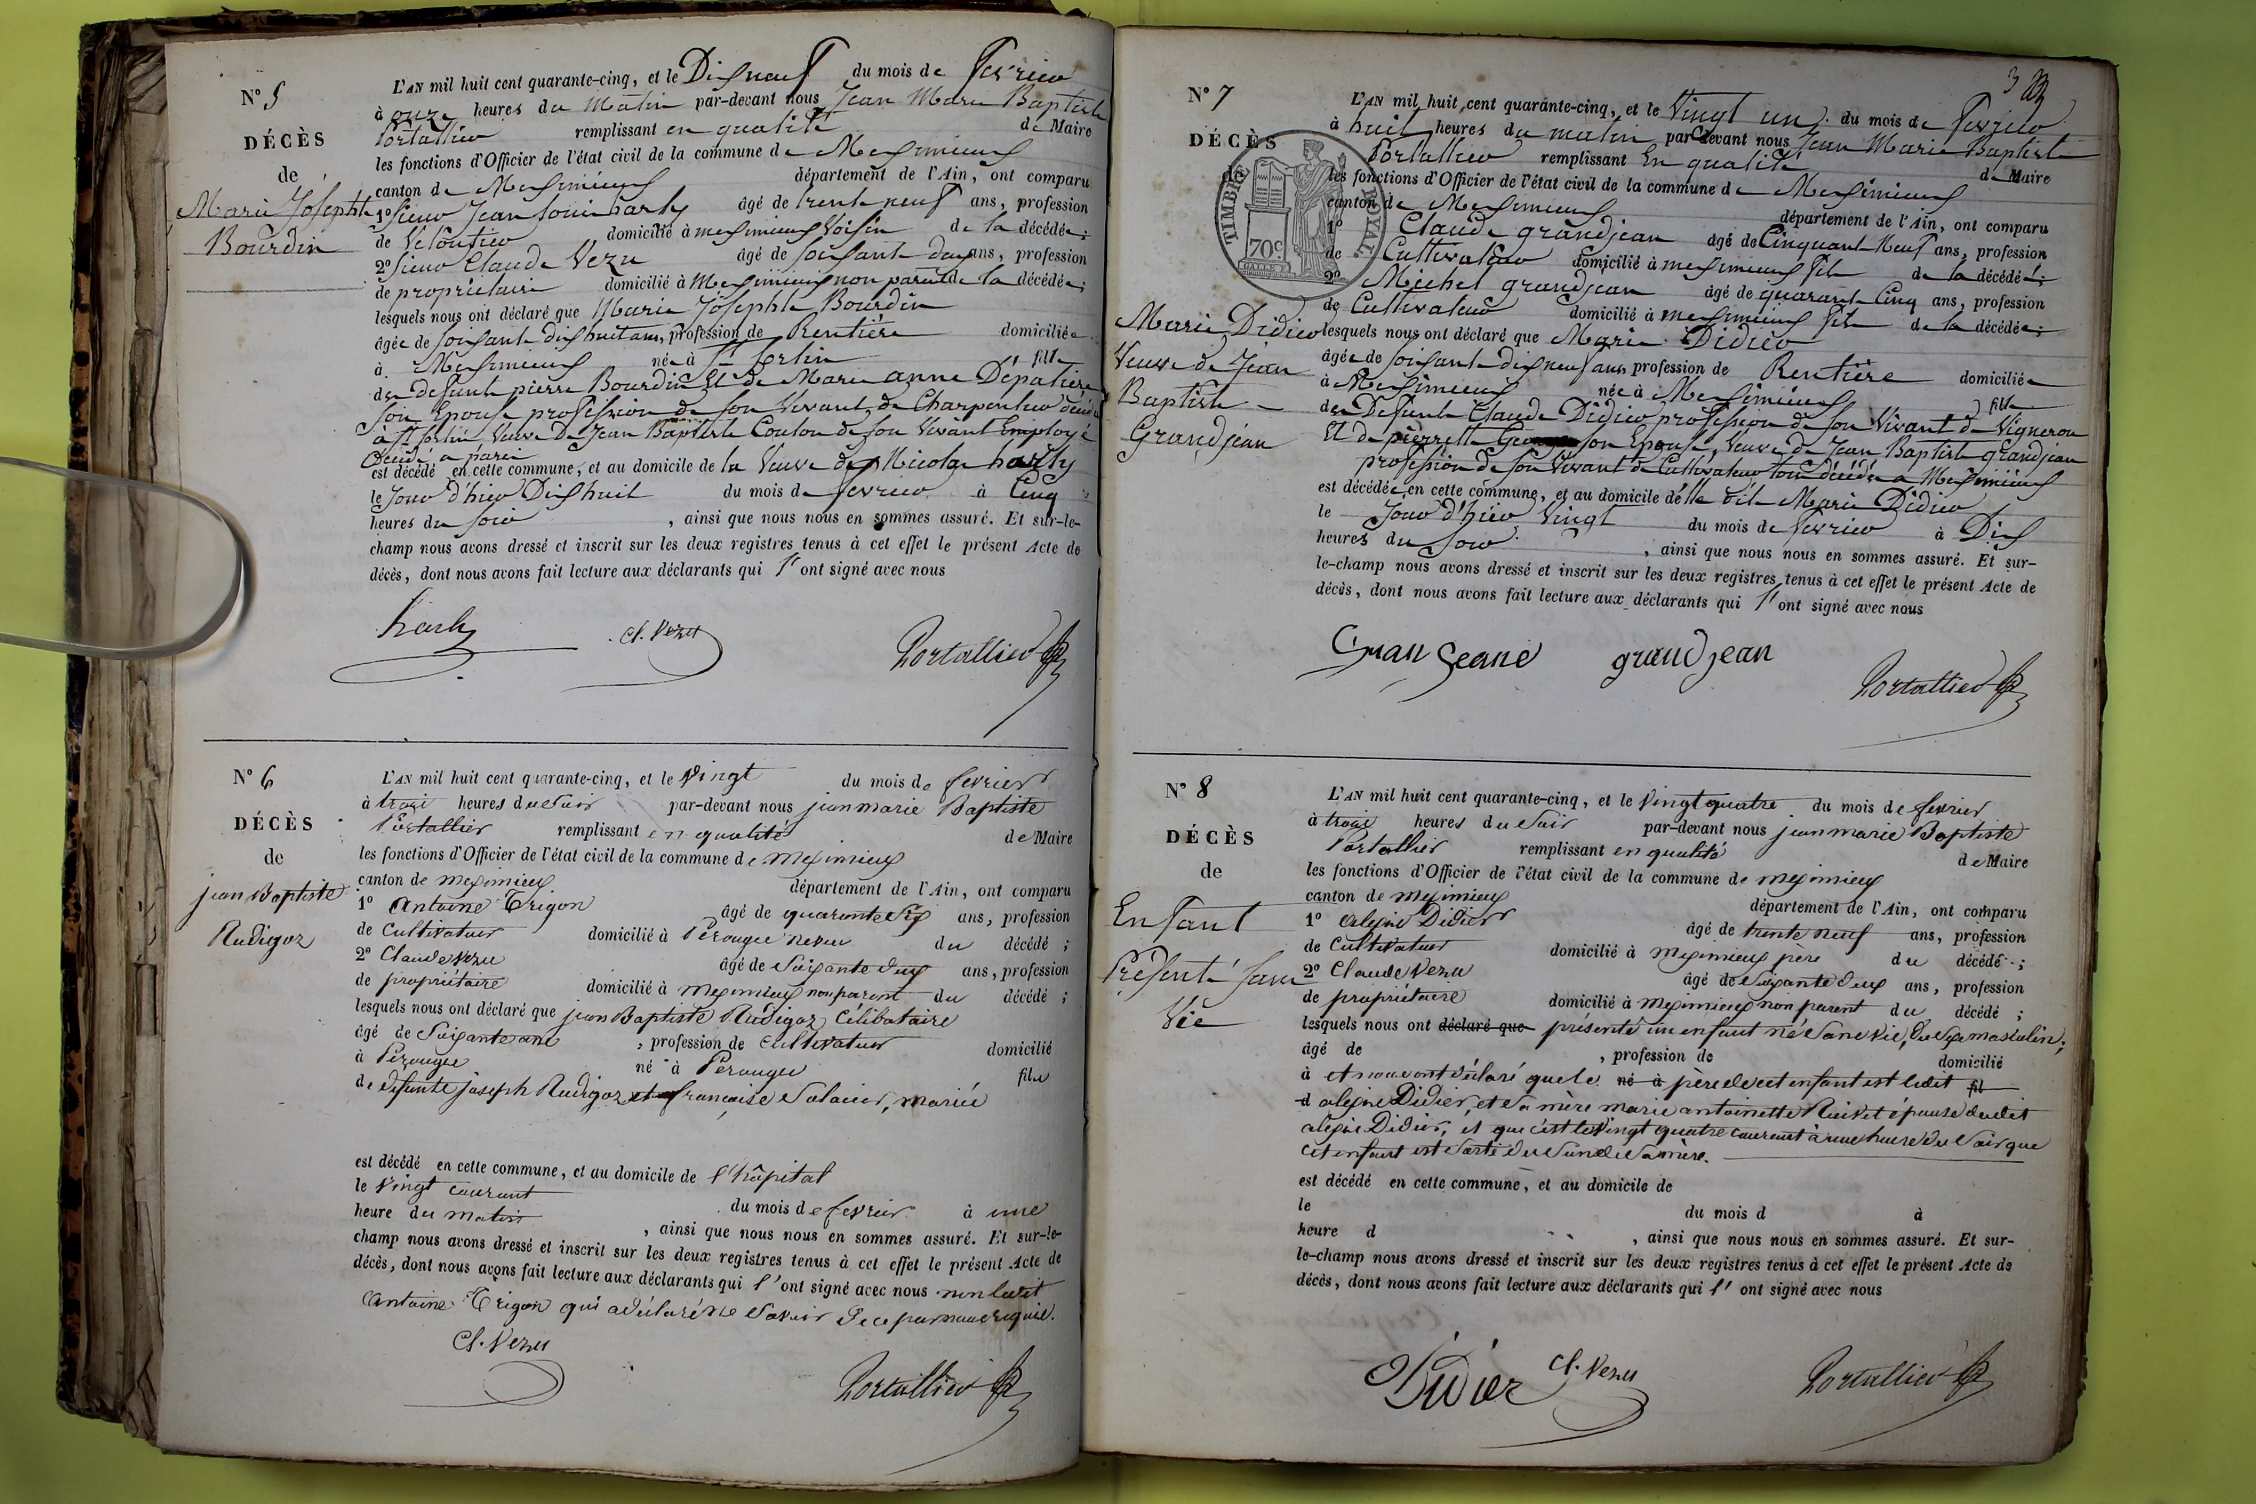 N° 5
DÉCÈS
de
Marie Josephte
Bourdin
L'AN mil huit cent quarante-cinq, et le Dixneuf du mois de Fevrier
à onze heures du Matin par-devant nous Jean Marie Baptiste
Portallier remplissant en qualité de Maire
les fonctions d'Officier de l'état civil de la commune de Meximieux
canton de Meximieux département de l'Ain, ont comparu
1° Sieur Jean Louis harly âgé de trente neuf ans, profession
de Veloutier domicilié à meximieux Voisin de la décédée;
2° Sieur Claude Vezu âgé de soixante deux ans, profession
de propriétaire domicilié à Meximieux non parent de la décédée;
lesquels nous ont déclaré que Marie Josephte Bourdin
âgée de soixante dix huit ans, profession de Rentière domiciliée
à Meximieux née à St Sorlin fille
de Defunt pierre Bourdin Et de Marie anne Dépalière
son Epouse profession de son Vivant de Charpentier décédé
à St Sorlin, Veuve De Jean Baptiste Coulon de son Vivant Employé
Décédé a paris
est décédé en cette commune, et au domicile de la Veuve de Nicolas harly
le Jour d'hier Dix huit du mois de fevrier à Cinq
heures du soir , ainsi que nous nous en sommes assuré. Et sur-le-
champ nous avons dressé et inscrit sur les deux registres tenus à cet effet le présent Acte de
décès, dont nous avons fait lecture aux déclarants qui l'ont signé avec nous
harly cl. Vezu Portallier
N° 6
DÉCÈS
de
jean Baptiste
Rudigoz
L'AN mil huit cent quarante-cinq, et le vingt du mois de fevrier
à trois heures du soir par-devant nous jean marie Baptiste
Portallier remplissant en qualité de Maire
les fonctions d'Officier de l'état civil de la commune de meximieux
canton de meximieux département de l'Ain, ont comparu
1° Antoine Trigon âgé de quarante six ans, profession
de cultivateur domicilié à Pérouges neveu du décédé ;
2° Claude vezu âgé de soixante deux ans, profession
de propriétaire domicilié à meximieux non parent du décédé ;
lesquels nous ont déclaré que jean Baptiste Rudigoz célibataire
âgé de soixante ans , profession de cultivateur domicilié
à Pérouges né à Perouges fils
de défunts joseph Rudigoz et françoise , mariés
est décédé en cette commune, et au domicile de l'hôpital
le vingt courant du mois de fevrier à une
heure du matin , ainsi que nous nous en sommes assuré. Et sur-le-
champ nous avons dressé et inscrit sur les deux registres tenus à cet effet le présent Acte de
décès, dont nous avons fait lecture aux déclarants qui l'ont signé avec nous non ledit
Antoine Trigon qui a déclaré ne savoir de ce par nous requis.
Cl. Vezu
Portallier
3
N° 7
DÉCÈS
de
TIMBRE ROYAL
70c
Marie Didier
Veuve de Jean
Baptiste
Grandjean
L'AN mil huit cent quarante-cinq, et le Vingt un du mois de Fevrier
à huit heures du matin par-devant nous Jean Marie Baptiste
Portallier remplissant En qualité de Maire
les fonctions d'Officier de l'état civil de la commune de Meximieux
canton de Meximieux département de l'Ain, ont comparu
1° Claude grandjean âgé de Cinquante Neuf ans, profession
de Cultivateur domicilié à meximieux fils de la décédée;
2° Michel grandjean âgé de quarante Cinq ans, profession
de Cultivateur domicilié à meximieux fils de la décédée;
lesquels nous ont déclaré que Marie Didier
âgée de soixante dix neuf ans profession de Rentière domiciliée
à Meximieux née à Meximieux fille
de Defunt Claude Didier profession de son Vivant de Vigneron
Et de pierrette son Epouse, Veuve de Jean Baptiste grandjean
profession de son Vivant de Cultivateur tous décédés a Meximieux
est décédée en cette commune, et au domicile de la dite Marie Didier
le Jour d'hier Vingt du mois de fevrier à Dix
heures du soir , ainsi que nous nous en sommes assuré. Et sur-
le-champ nous avons dressé et inscrit sur les deux registres tenus à cet effet le présent Acte de
décès, dont nous avons fait lecture aux déclarants qui l'ont signé avec nous
grandjean
Portallier
N° 8
DÉCÈS
de
Enfant
Présenté sans
Vie
L'AN mil huit cent quarante-cinq, et le vingt quatre du mois de fevrier
à trois heures du soir par-devant nous jean marie Baptiste
Portallier remplissant en qualité de Maire
les fonctions d'Officier de l'état civil de la commune de meximieux
canton de meximieux département de l'Ain, ont comparu
1° alexis Didier âgé de trente neuf ans, profession
de cultivateur domicilié à meximieux père du décédé ;
2° Claude Vezu âgé de soixante deux ans, profession
de propriétaire domicilié à meximieux non parent du décédé ;
lesquels nous ont déclaré que présenté un enfant né sans vie, du sexe masculin;
âgé de , profession de domicilié
à et nous ont déclaré que le né à père de cet enfant est ledit fil
d alexis Didier, et sa mère marie antoinette épouse dudit
alexis Didier, et que c'est le vingt quatre courant à une heure du soir que
cet enfant est sorti du sein de sa mère.
est décédé en cette commune, et au domicile de
le du mois d à
heure d , ainsi que nous nous en sommes assuré. Et sur-
le-champ nous avons dressé et inscrit sur les deux registres tenus à cet effet le présent Acte de
décès, dont nous avons fait lecture aux déclarants qui l'ont signé avec nous
Didier cl. Vezu Portallier